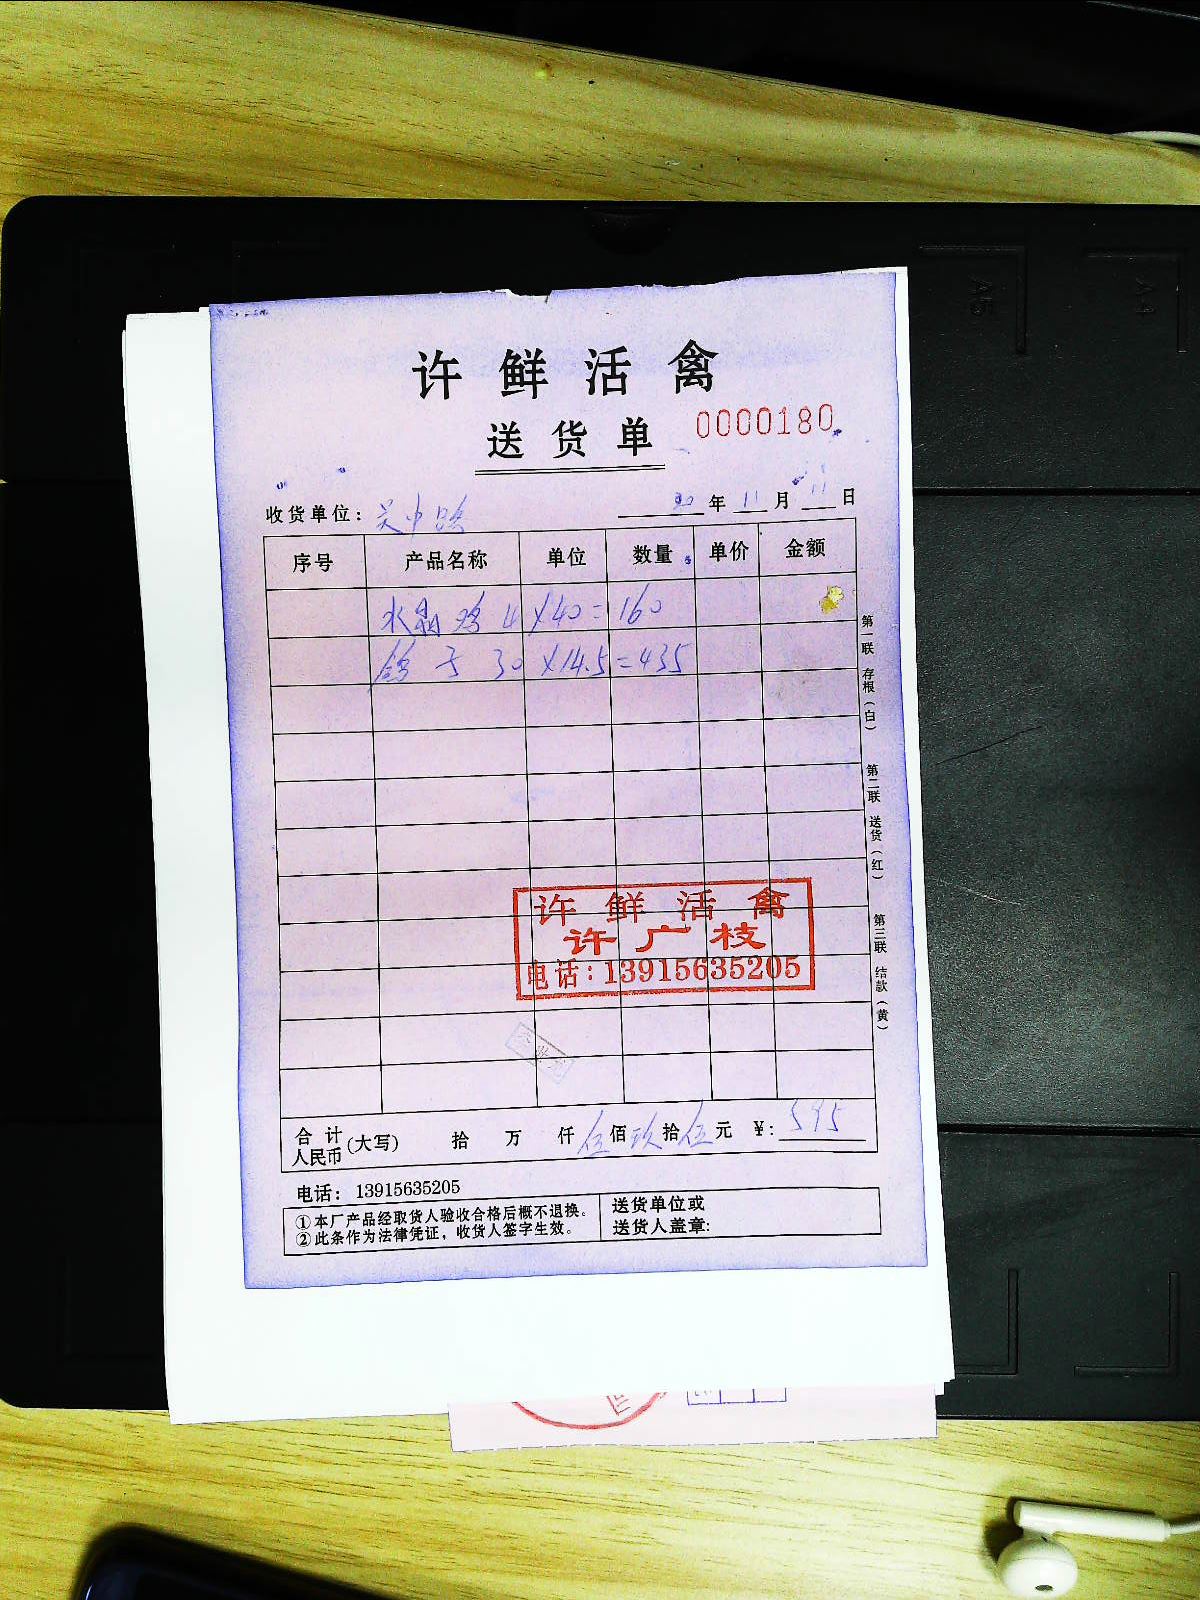 许鲜活禽
送货单 0000180
收货单位：吴中路 20年11月11日
序号 产品名称 单位 数量 单价 金额
水晶鸡 4×40=160
鸽子 30×14.5=435
许鲜活禽
许广枝
电话：13915635205
合计人民币(大写) 拾 万 仟伍佰玖拾伍元 ¥：595
电话： 13915635205
①本厂产品经取货人验收合格后概不退换。
②此条作为法律凭证，收货人签字生效。
送货单位或
送货人盖章：
第一联 存根（白）
第二联 送货（红）
第三联 结款（黄）
A5
A4